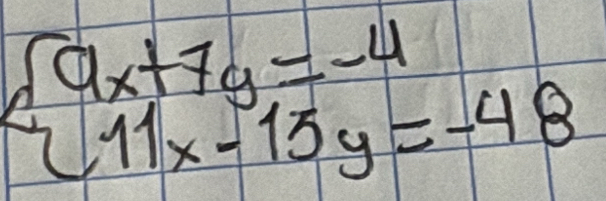 {9x+7y=-4
11x-13y=-48